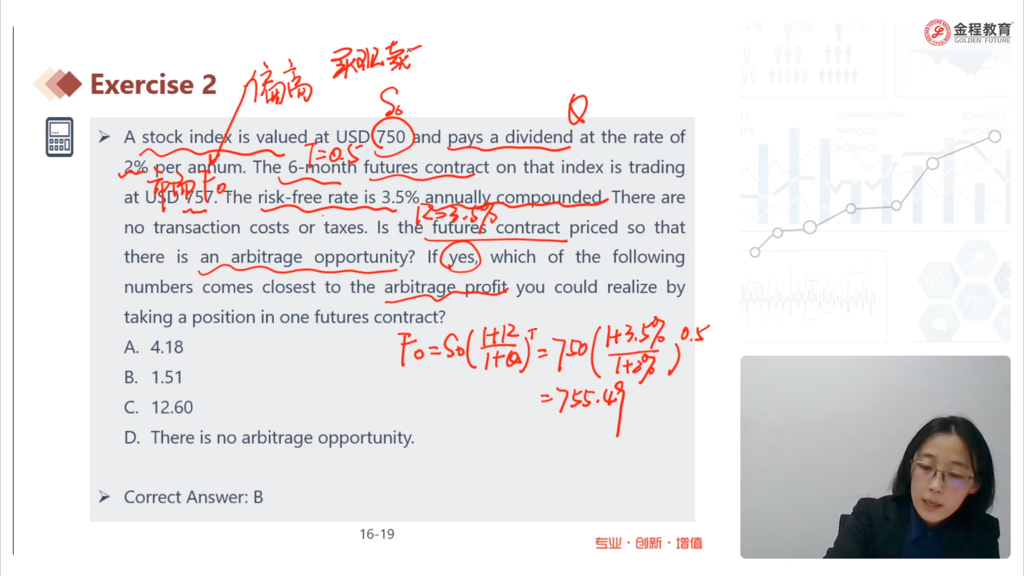 金程教育
GOLDEN FUTURE
Exercise 2
偏高
买现卖
S₀
Q
A stock index is valued at USD 750 and pays a dividend at the rate of
2% per annum. The 6-month futures contract on that index is trading
T=0.5
at USD 757. The risk-free rate is 3.5% annually compounded. There are
F₀
R=3.5%
no transaction costs or taxes. Is the futures contract priced so that
there is an arbitrage opportunity? If yes, which of the following
numbers comes closest to the arbitrage profit you could realize by
taking a position in one futures contract?
F₀=S₀(1+R/1+Q)ᵀ=750(1+3.5%/1+2%)^0.5
=755.49
A. 4.18
B. 1.51
C. 12.60
D. There is no arbitrage opportunity.
Correct Answer: B
16-19
专业·创新·增值